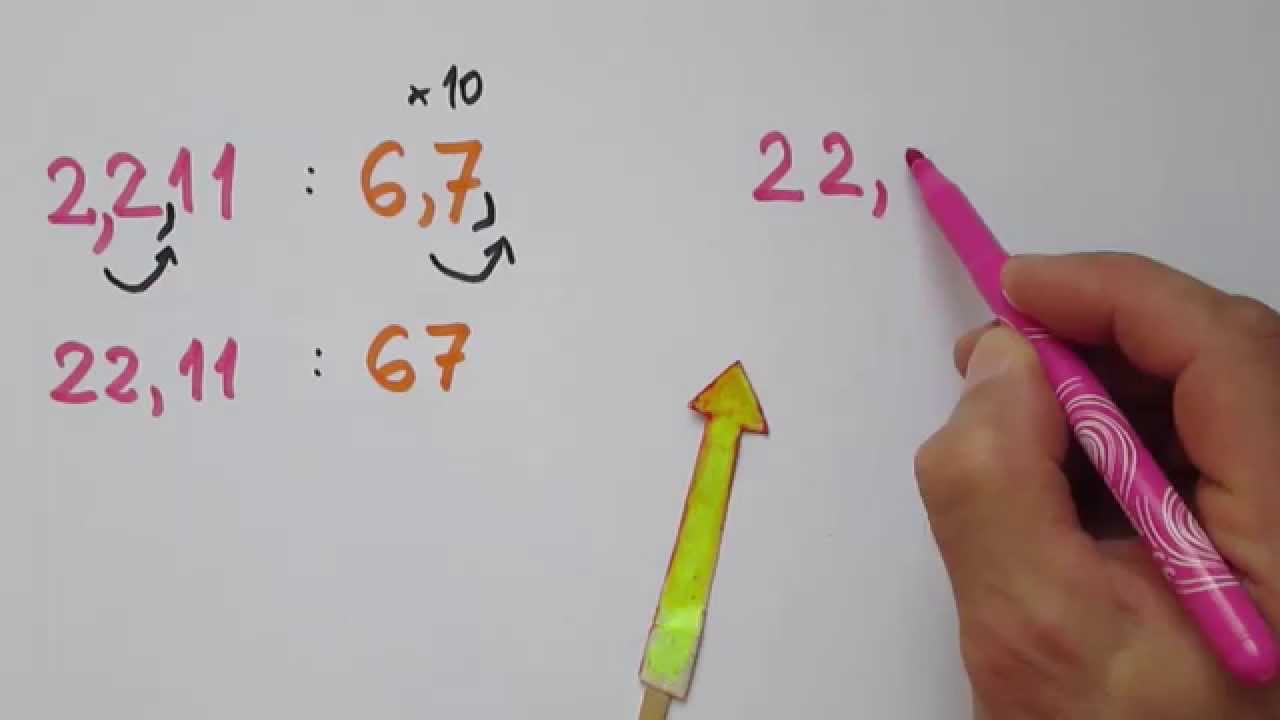 × 10
2,2,11 : 6,7,
22,11 : 67
22,